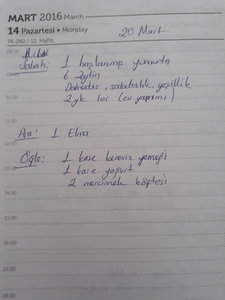 MART 2016 March
14 Pazartesi • Monday
74-292 / 12. Hafta
20 Mart
08:00
Sabah: 1 haşlanmış yumurta
09:00
6 Zeytin
Domates, salatalık, yeşillik
10:00
2 yk lor (ev yapımı)
11:00
Ara: 1 Elma
12:00
Öğle: 1 kase kereviz yemeği
1 kase yoğurt
2 mercimek köftesi
14:00
15:00
16:00
17:00